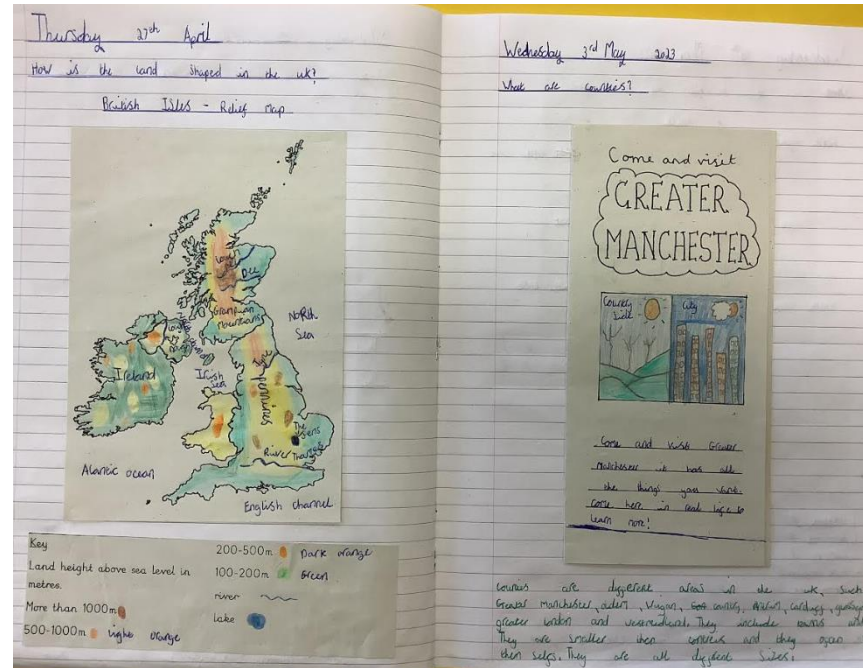 Thursday 27th April
How is the land shaped in the uk?
British Isles - Relief Map
Dee
Grampian
Mountains
North
Sea
Ireland
Irish
Sea
Pennines
The
River Thames
Alantic ocean
English channel
Key
Land height above sea level in
metres.
More than 1000m
500-1000m lighe orange
200-500m Dark orange
100-200m Green
river
lake
Wednesday 3rd May 2023
What are counties?
Come and visit
GREATER
MANCHESTER
Country
Side
City
Come and visit Greater
Manchester it has all
the things you want.
Come here in real life to
learn more!
are different areas in the uk, such
Greater Manchester,
greater london and They include towns
They are smaller then and they
then selfs. They are all different sizes.